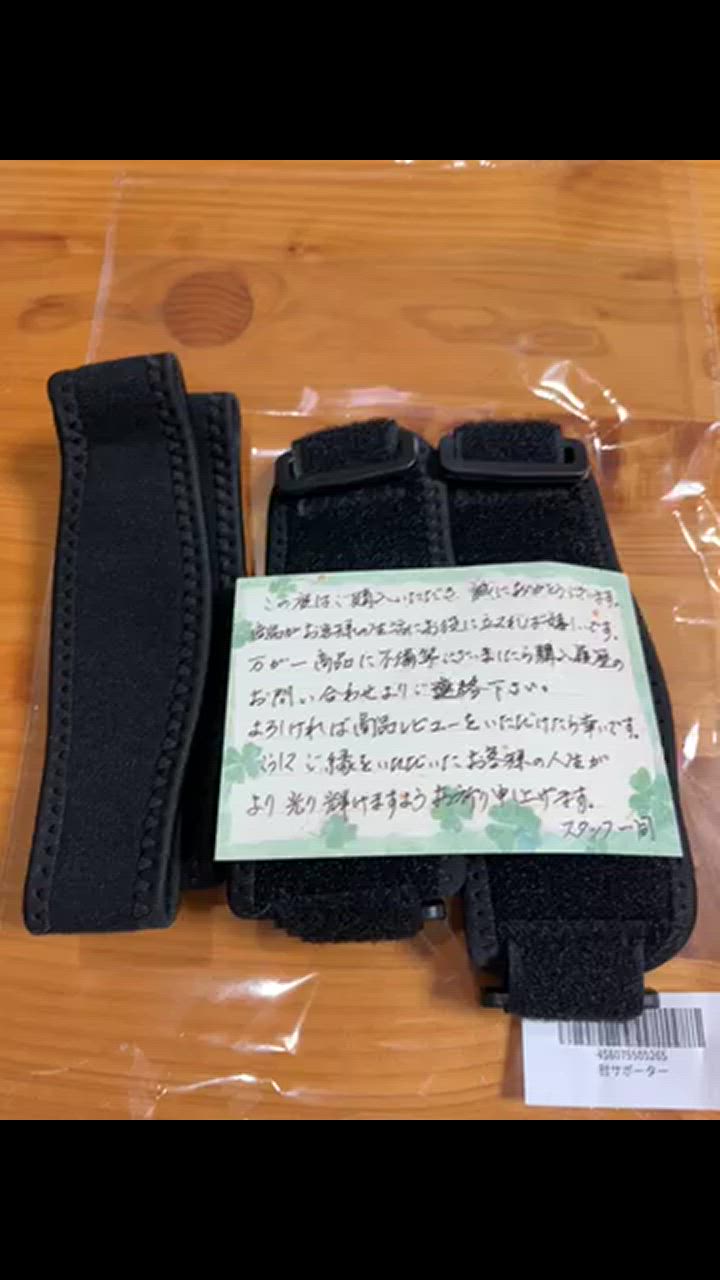 この度はご購入いただき、誠にありがとうございます。
商品がお客様の生活にお役に立てれば嬉しいです。
万が一商品に不備等ございましたら購入履歴の
お問い合わせよりご連絡下さい。
よろしければ商品レビューをいただけたら幸いです。
ご縁をいただいたお客様の人生が
より光り輝けますようお祈り申し上げます。
スタッフ一同
サポーター